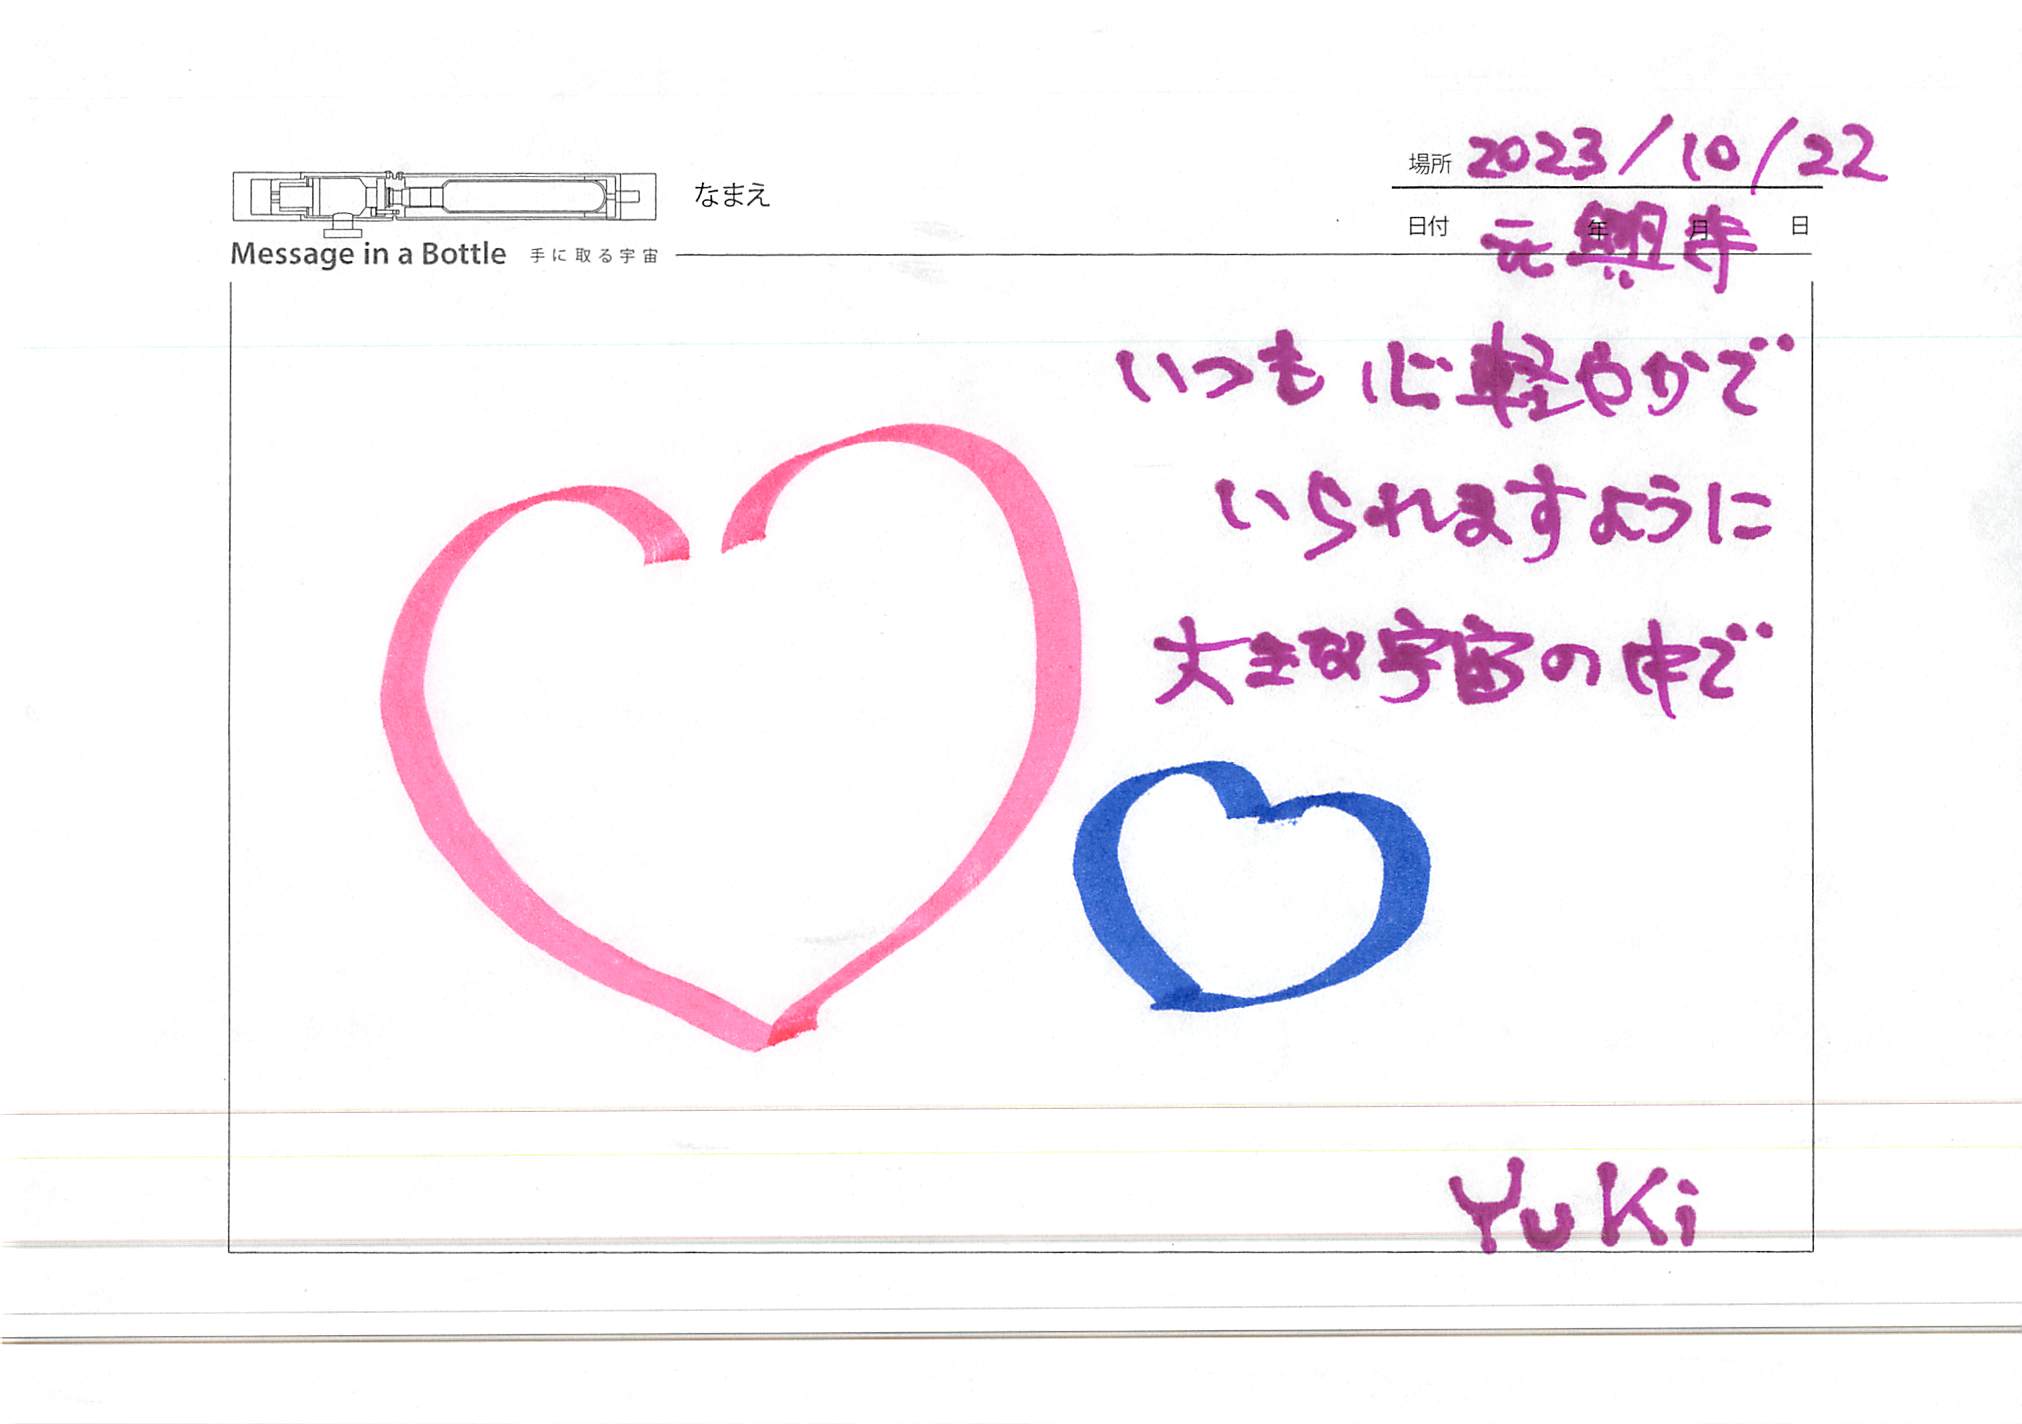 なまえ
場所 2023/10/22
日付 年 月 日
元興寺
Message in a Bottle 手に取る宇宙
いつも 心軽やかで
いられますように
大きな宇宙の中で
YuKi